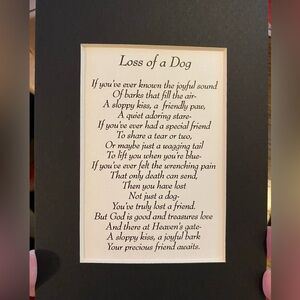 Loss of a Dog
If you've ever known the joyful sound
Of barks that fill the air-
A sloppy kiss, a friendly paw,
A quiet adoring stare-
If you've ever had a special friend
To share a tear or two,
Or maybe just a wagging tail
To lift you when you're blue-
If you've ever felt the wrenching pain
That only death can send,
Then you have lost
Not just a dog-
You've truly lost a friend.
But God is good and treasures love
And there at Heaven's gate-
A sloppy kiss, a joyful bark
Your precious friend awaits.